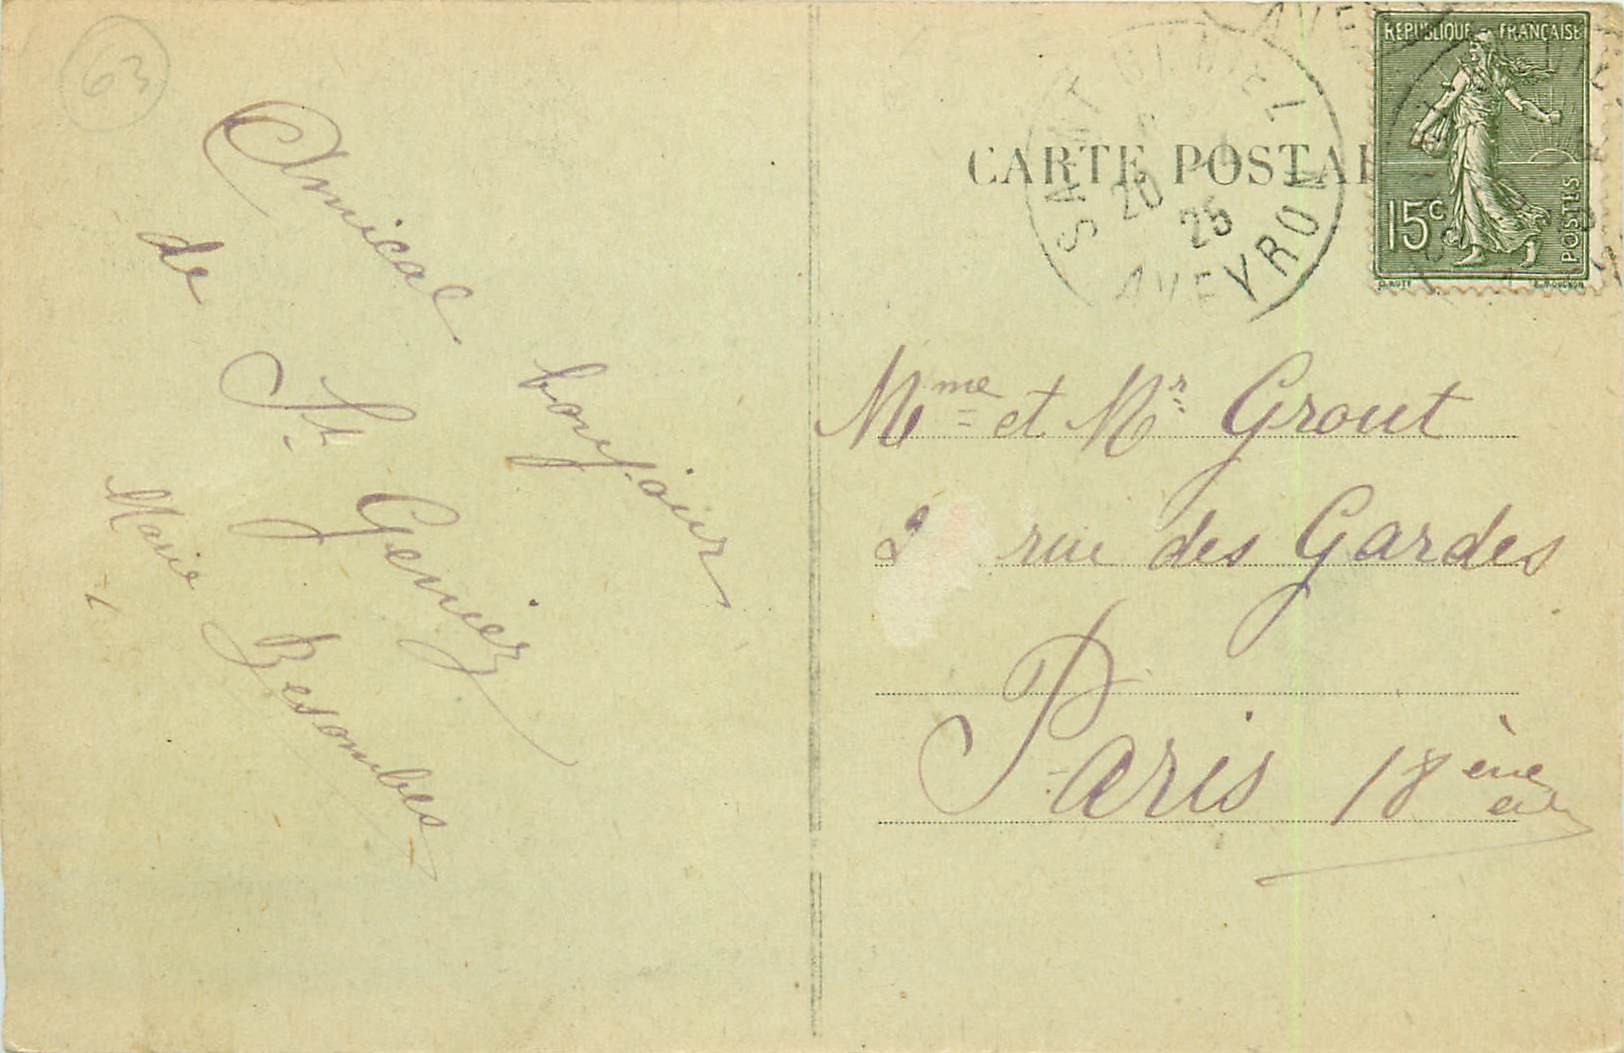 63
Amical bonjour
de St. Geniez
Marie Besombes
CARTE POSTALE
SAINT GENIEZ
20
25
AVEYRON
REPUBLIQUE FRANÇAISE
15c
POSTES
Mme et Mr Grout
2 rue des Gardes
Paris 18ème